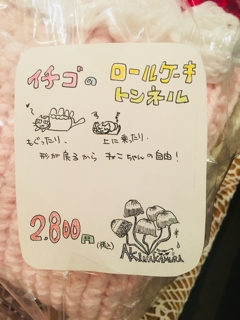 イチゴの ロールケーキ
トンネル
もぐったり、 上に来たり、
形が戻るから ねこちゃんの自由！
2.800円(税込)